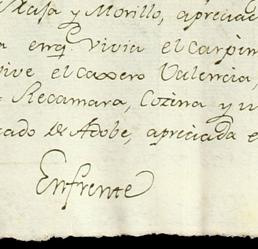 Casa y Morillo, apreciad
a enq vivia el Carpin
vive el Caxero Valencia,
Recamara, Cozina y u
cado de Adobe, apreciada e
Enfrente